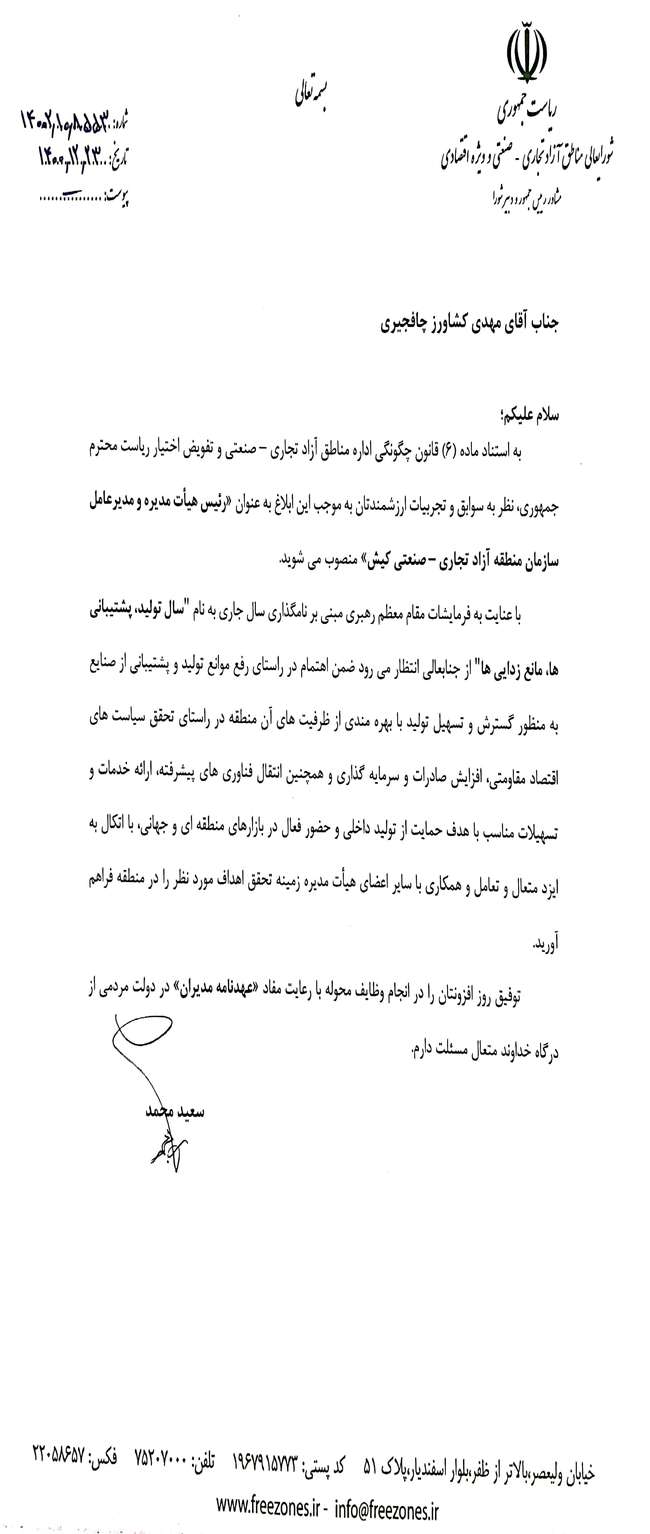 بسمه تعالی
ریاست جمهوری
شورایعالی مناطق آزاد تجاری - صنعتی و ویژه اقتصادی
مشاور رییس جمهور و دبیر شورا
شماره:
تاریخ: ۱۴۰۰,۱۲,۲۳
پیوست:
جناب آقای مهدی کشاورز چافجیری
سلام علیکم؛
به استناد ماده (۶) قانون چگونگی اداره مناطق آزاد تجاری – صنعتی و تفویض اختیار ریاست محترم
جمهوری، نظر به سوابق و تجربیات ارزشمندتان به موجب این ابلاغ به عنوان «رئیس هیأت مدیره و مدیرعامل
سازمان منطقه آزاد تجاری – صنعتی کیش» منصوب می شوید.
با عنایت به فرمایشات مقام معظم رهبری مبنی بر نامگذاری سال جاری به نام "سال تولید، پشتیبانی
ها، مانع زدایی ها" از جنابعالی انتظار می رود ضمن اهتمام در راستای رفع موانع تولید و پشتیبانی از صنایع
به منظور گسترش و تسهیل تولید با بهره مندی از ظرفیت های آن منطقه در راستای تحقق سیاست های
اقتصاد مقاومتی، افزایش صادرات و سرمایه گذاری و همچنین انتقال فناوری های پیشرفته، ارائه خدمات و
تسهیلات مناسب با هدف حمایت از تولید داخلی و حضور فعال در بازارهای منطقه ای و جهانی، با اتکال به
ایزد متعال و تعامل و همکاری با سایر اعضای هیأت مدیره زمینه تحقق اهداف مورد نظر را در منطقه فراهم
آورید.
توفیق روز افزونتان را در انجام وظایف محوله با رعایت مفاد «عهدنامه مدیران» در دولت مردمی از
درگاه خداوند متعال مسئلت دارم.
سعید محمد
خیابان ولیعصر،بالاتر از ظفر،بلوار اسفندیار،پلاک ۵۱ کد پستی: ۱۹۶۷۹۱۵۷۷۳ تلفن: ۷۵۲۰۷۰۰۰ فکس: ۲۲۰۵۸۶۵۷
www.freezones.ir - info@freezones.ir